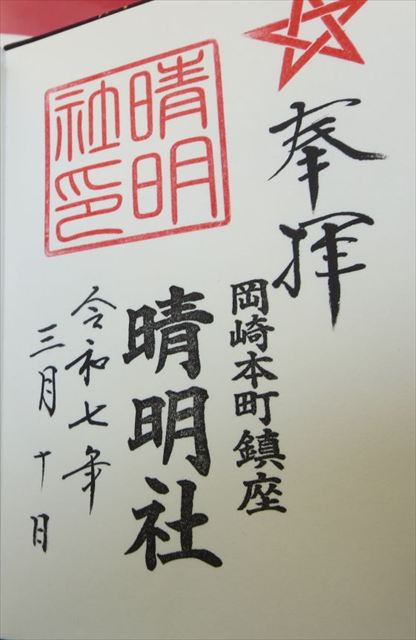 奉拝
岡崎本町鎮座
晴明
社印
晴明社
令和七年
三月十日